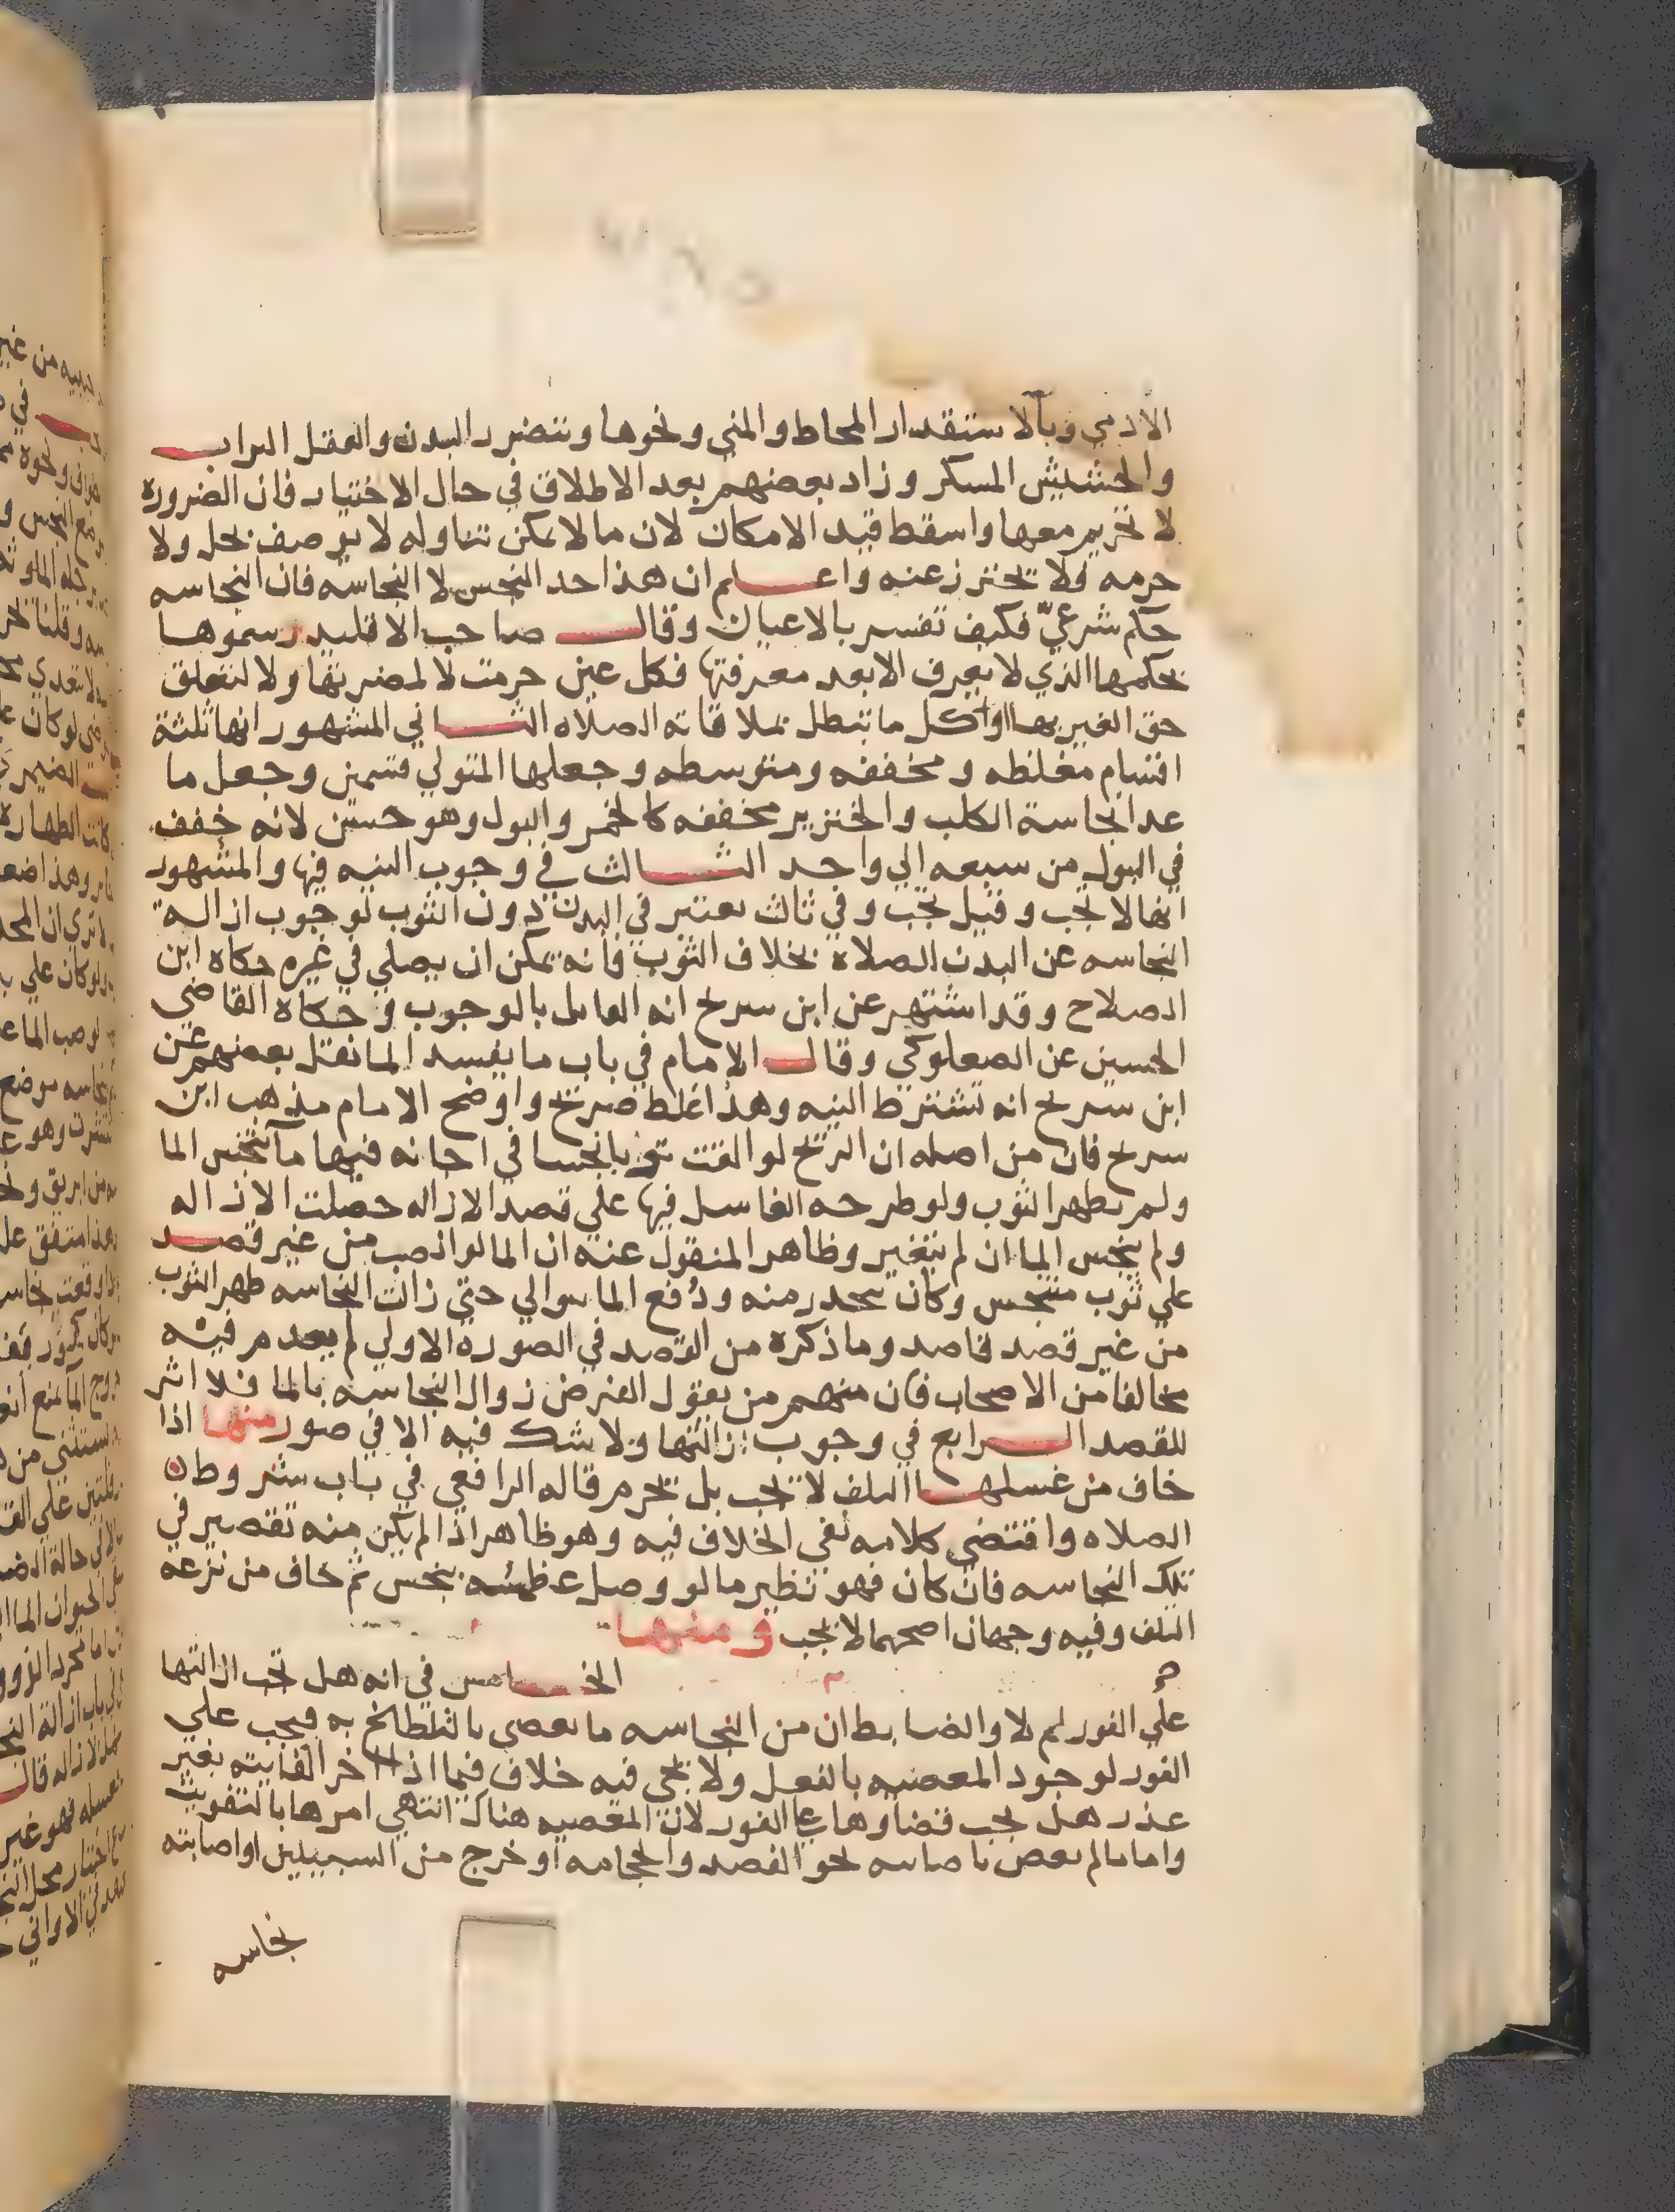 الادمي وبالاستقدار المخاط والمني ونحوها وبتضرر البدن والعقل التراب
والحشيش المسكر وزاد بعضهم بعد الاطلاق في حال الاختيار فان الضروره
لا تحريم معها واسقط قيد الامكان لان ما لا يمكن تناوله لا يوصف بحل ولا
حرمه فلا يحترز عنه واعلم ان هذا حد النجس لا النجاسه فان النجاسه
حكم شرعيّ فكيف تفسر بالاعيان وقال صاحب الاقليد رسموها
بحكمها الذي لا يعرف الا بعد معرفتها فكل عين حرمت لا لمضرتها ولا لتعلق
حق الغير بها او كل ما تبطل بملاقاته الصلاه الثاني المشهور انها ثلثة
اقسام مغلظه ومخففه ومتوسطه وجعلها المتولي قسمين وجعل ما
عدا نجاسة الكلب والخنزير مخففه كالخمر والبول وهو حسن لانه خفف
في البول من سبعه الي واحد الثالث في وجوب النيه فيها والمشهور
انها لا تجب وقيل تجب وفي ثالث يعتبر في البدن دون الثوب لوجوب ازالة
النجاسه عن البدن للصلاه بخلاف الثوب فانه يمكن ان يصلي في غيره حكاه ابن
الصلاح وقد اشتهر عن ابن سريج انه القايل بالوجوب وحكاه القاضي
الحسين عن الصعلوكي وقال الامام في باب ما يفسد الما نقل بعضهم عن
ابن سريج انه تشترط النيه وهذا غلط صريح واوضح الامام مذهب ابن
سريج فان من اصله ان الريح لو القت ثوبا نجسا في اجانه فيها ما نجس الما
ولم يطهر الثوب ولو طرحه الغاسل فيها علي قصد الازاله حصلت الازاله
ولم ينجس الما ان لم يتغير وظاهر المنقول عنه ان الما لو انصب من غير قصد
علي ثوب متنجس وكان ينحدر منه ودفع الما يتوالي حتي زالت النجاسه طهر الثوب
من غير قصد قاصد وما ذكره من القصد في الصوره الاولي لم يعدم فيه
مخالفا من الاصحاب فان منهم من يقول الغرض زوال النجاسه بالما فلا اثر
للقصد الرابع في وجوب ازالتها ولا شك فيه الا في صور منها اذا
خاف من غسلها التلف لا تجب بل تحرم قاله الرافعي في باب شروط
الصلاه واقتضي كلامه نفي الخلاف فيه وهو ظاهر اذا لم يكن منه تقصير في
تلك النجاسه فان كان فهو نظير ما لو وصل عظمه بنجس ثم خاف من نزعه
التلف وفيه وجهان اصحهما لا تجب ومنها
الخامس في انه هل تجب ازالتها
علي الفور ام لا والضابط ان من النجاسه ما يعصي بالتلطخ به فيجب علي
الفور لوجود المعصيه بالفعل ولا يجي فيه خلاف فيما اذا اخر الفايته بغير
عذر هل يجب قضاوها علي الفور لان المعصيه هناك انتهي امرها بالتفويت
واما ما لم يعص باصابته نحو الفصد والحجامه او خرج من السبيلين او اصابته
نجاسه